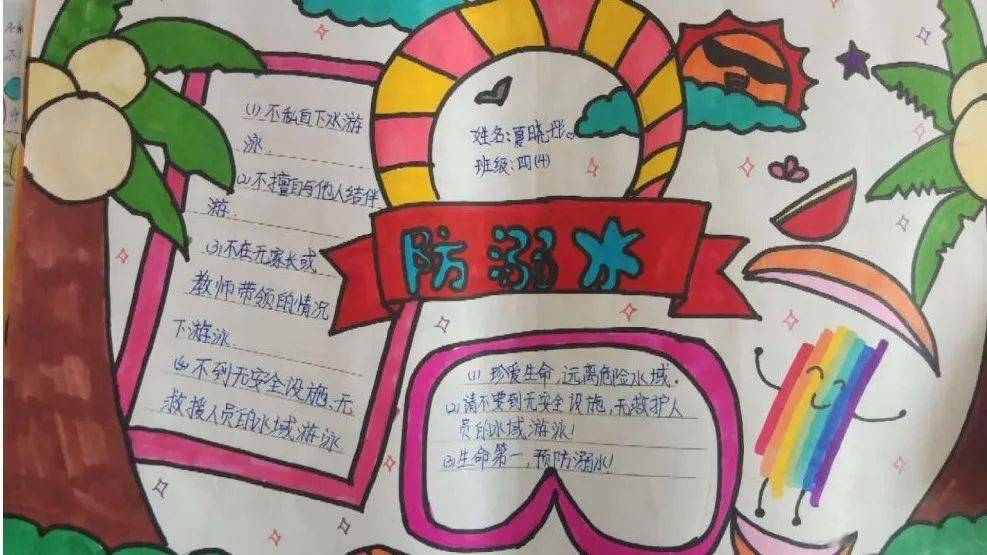 (1)不私自下水游
泳.
(2)不擅自与他人结伴
游.
(3)不在无家长或
教师带领的情况
下游泳.
(4)不到无安全设施、无
救援人员的水域游泳.
姓名:夏晓彤
班级:四(4)
防溺水
(1)珍爱生命,远离危险水域.
(2)请不要到无安全设施,无救护人
员的水域游泳!
(3)生命第一,预防溺水!